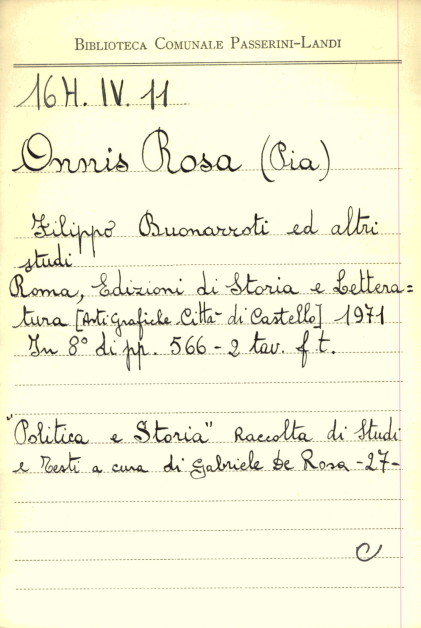 BIBLIOTECA COMUNALE PASSERINI-LANDI
16 H. IV. 11
Onnis Rosa (Pia)
Filippo Buonarroti ed altri
studi
Roma, Edizioni di Storia e Lettera=
tura [Arti Grafiche Città di Castello] 1971
In 8° di pp. 566 - 2 tav. f. t.
"Politica e Storia" Raccolta di Studi
e Testi a cura di Gabriele De Rosa - 27 -
C